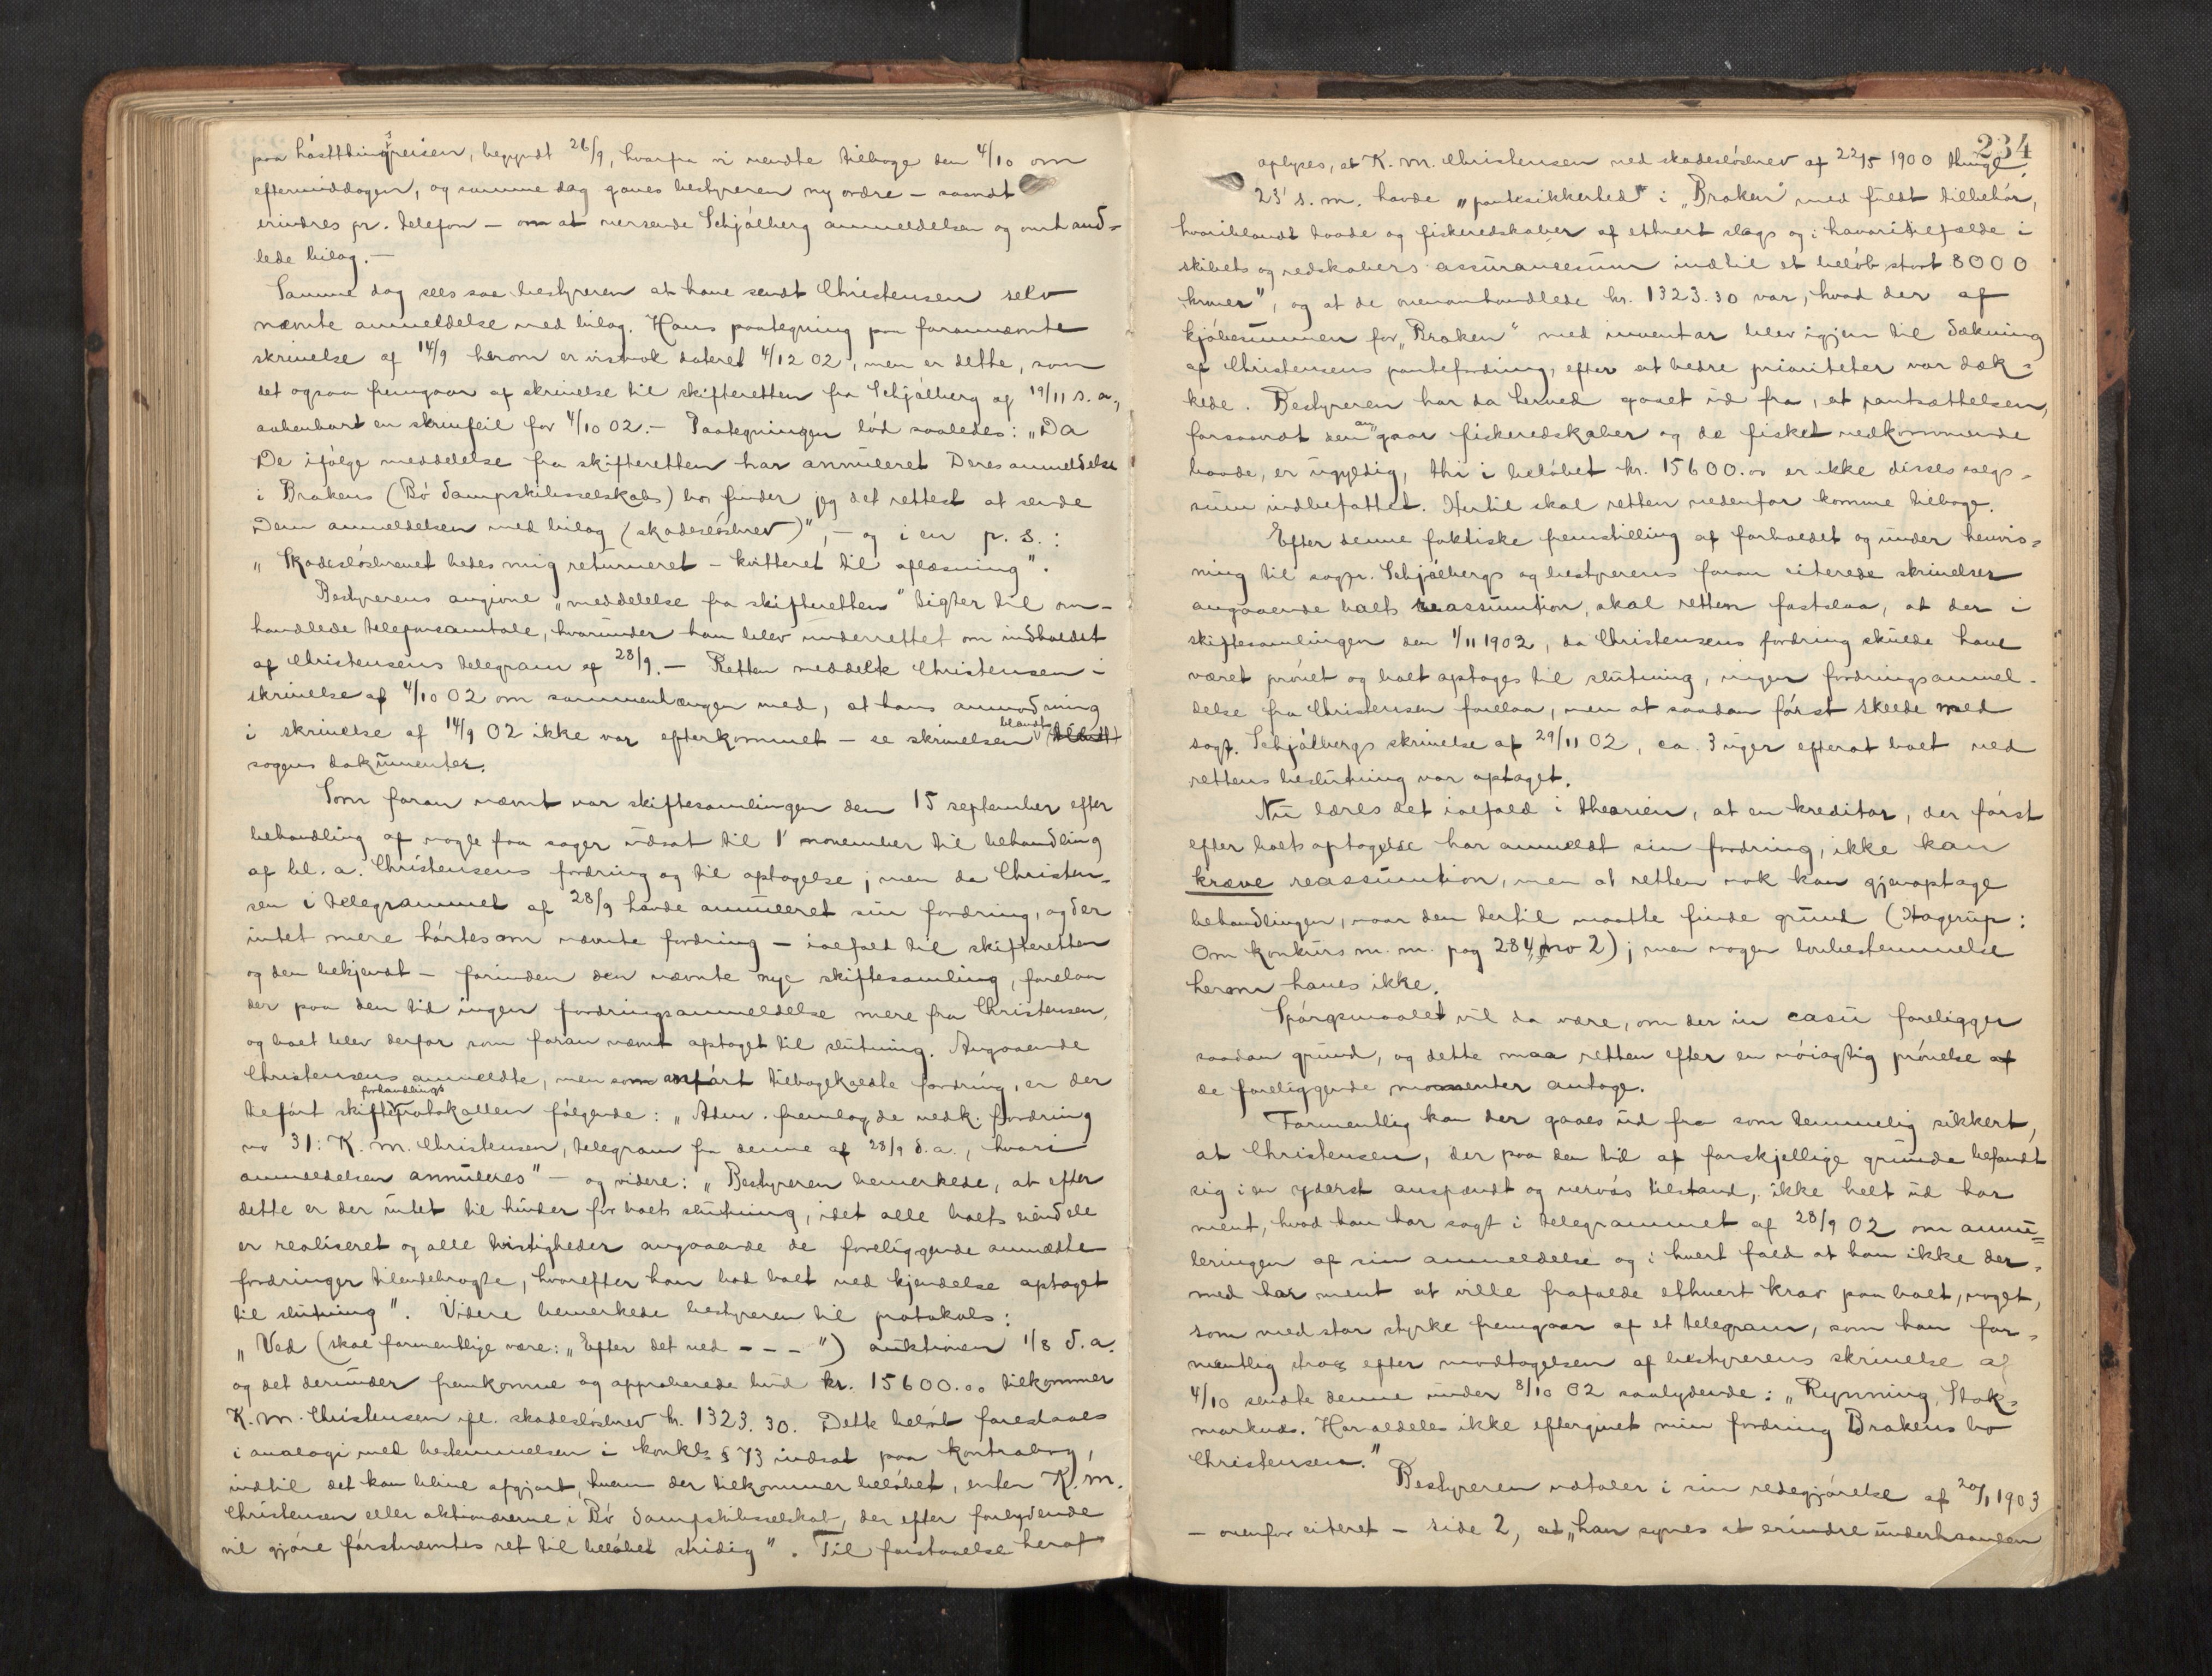 paa høstthingsreisen, begyndt 26/9, hvorfra vi vendte tilbage den 4/10 om
eftermiddagen, og samme dag gaves bestyreren ny ordre – saavidt
erindres pr. telefon – om at versende Schjølberg anmeldelsen og omhand-
lede bilag. –
Samme dag sees saa bestyreren at have sendt Christensen selv
nævnte anmeldelse med bilag. Hans paategning paa forannævnte
skrivelse af 14/9 herom er vistnok dateret 4/12 02, men er dette, som
det ogsaa fremgaar af skrivelse til skifteretten fra Schjølberg af 19/11 s. a.,
aabenbart en skrivfeil for 4/10 02. – Paategningen lød saaledes: „Da
De ifølge meddelelse fra skifteretten har annuleret Deres anmeldelse
i Brakens (Bø Dampskibsselskabs) bo finder jeg det rettest at sende
Dem anmeldelsen med bilag (skadesløsbrev)", – og i en p. s.:
„Skadesløsbrevet bedes mig returneret – kvitteret til aflæsning".
Bestyrerens angivne „meddelelse fra skifteretten" sigter til om-
handlede telefonsamtale, hvorunder han blev underrettet om indholdet
af Christensens telegram af 28/9. – Retten meddelte Christensen i
skrivelse af 4/10 02 om sammenhængen med, at hans anmodning
i skrivelse af 14/9 02 ikke var efterkommet – se skrivelsen blandt
sagens dokumenter.
Som foran nævnt var skiftesamlingen den 15 september efter
behandling af nogle faa sager udsat til 1' november til behandling
af bl. a. Christensens fordring og til optagelse; men da Christen-
sen i telegrammet af 28/9 havde annulleret sin fordring, og der
intet mere hørtes om nævnte fordring – ialfald til skifteretten
og den bekjendt – forinden den nævnte nye skiftesamling, forelaa
der paa den tid ingen fordringsanmeldelse mere fra Christensen,
og boet blev derfor som foran nævnt optaget til slutning. Angaaende
Christensens anmeldte, men som anført tilbagekaldte fordring, er der
tilført skifteforhandlingsprotokollen følgende: „Adm. fremlagde vedk. fordring
no 31: K. M. Christensen, telegram fra denne af 28/9 d. a., hvori
anmeldelsen annuleres" – og videre: „Bestyreren bemerkede, at efter
dette er der intet til hinder for boets slutning, idet alle boets eiendele
er realiseret og alle tvistigheder angaaende de foreliggende anmeldte
fordringer tilendebragte, hvorefter han bad boet ved kjendelse optaget
til slutning". Videre bemerkede bestyreren til protokols:
„Ved (skal formentlige være: „Efter det ved - - - ") auktionen 1/8 d. a.
og det derunder fremkomne og approberede bud kr. 15600.00 tilkommer
K. M. Christensen ifl. skadesløsbrev kr. 1323.30. Dette beløb forestaaes
i analogi med bestemmelsen i konkl. § 73 indsat paa kontrabog,
indtil det kan blive afgjort, hvem der tilkommer beløbet, enten K. M.
Christensen eller aktionærerne i Bø Dampskibsselskab, der efter forlydende
vil gjøre førstnævntes ret til beløbet stridig". Til forstaaelse heraf
234
oplyses, at K. M. Christensen ved skadesløsbrev af 22/5 1900 thingl.
23' s. m. havde „pantesikkerhed" i „Braken" med fuldt tilbehør,
hvoriblandt baade og fiskeredskaber af ethvert slags og i havaritilfælde i
skibets og redskabers assurancesum indtil et beløb stort 8000
kroner", og at de ovenomhandlede kr. 1323.30 var, hvad der af
kjøbesummen for „Braken" med inventar blev igjen til dækning
af Christensens pantefordring, efter at bedre prioriteter var dæk-
kede. Bestyreren har da herved gaaet ud fra, at pantsættelsen,
forsaavidt den angaar fiskeredskaber og de fisket vedkommende
baade, er ugyldig, thi i beløbet kr. 15600.00 er ikke disses salgs-
sum indbefattet. Hertil skal retten nedenfor komme tilbage.
Efter denne faktiske fremstilling af forholdet og under henvis-
ning til sagfr. Schjølbergs og bestyrerens foran citerede skrivelser
angaaende boets reassumtion, skal retten fastslaa, at der i
skiftesamlingen den 1/11 1902, da Christensens fordring skulde have
været prøvet og boet optages til slutning, ingen fordringsanmel-
delse fra Christensen forelaa, men at saadan først skeede med
sagf. Schjølbergs skrivelse af 29/11 02, ca. 3 uger efterat boet ved
rettens beslutning var optaget.
Nu læres det ialfald i theorien, at en kreditor, der først
efter boets optagelse har anmeldt sin fordring, ikke kan
kræve reassumtion, men at retten nok kan gjenoptage
behandlingen, naar den dertil maatte finde grund (Hagerup:
Om konkurs m. m. pag 284, no 2); men nogen lovbestemmelse
herom haves ikke.
Spørgsmaalet vil da være, om der in casu foreligger
saadan grund, og dette maa retten efter en nøiagtig prøvelse af
de foreliggende momenter antage.
Formentlig kan der gaaes ud fra som temmelig sikkert,
at Christensen, der paa den tid af forskjellige grunde befandt
sig i en yderst anspændt og nervøs tilstand, ikke helt ud har
ment, hvad han har sagt i telegrammet af 28/9 02 om annu-
leringen af sin anmeldelse og i hvert fald at han ikke der-
med har ment at ville frafalde ethvert krav paa boet, noget,
som med stor styrke fremgaar af et telegram, som han for-
mentlig strags efter modtagelsen af bestyrerens skrivelse af
4/10 sendte denne under 8/10 02 saalydende: „Rynning, Stok-
marknæs. Har aldeles ikke eftergivet min fordring Brakens bo
Christensen."
Bestyreren udtaler i sin redegjørelse af 20/1 1903
– ovenfor citeret – side 2, at „han synes at erindre underhaanden